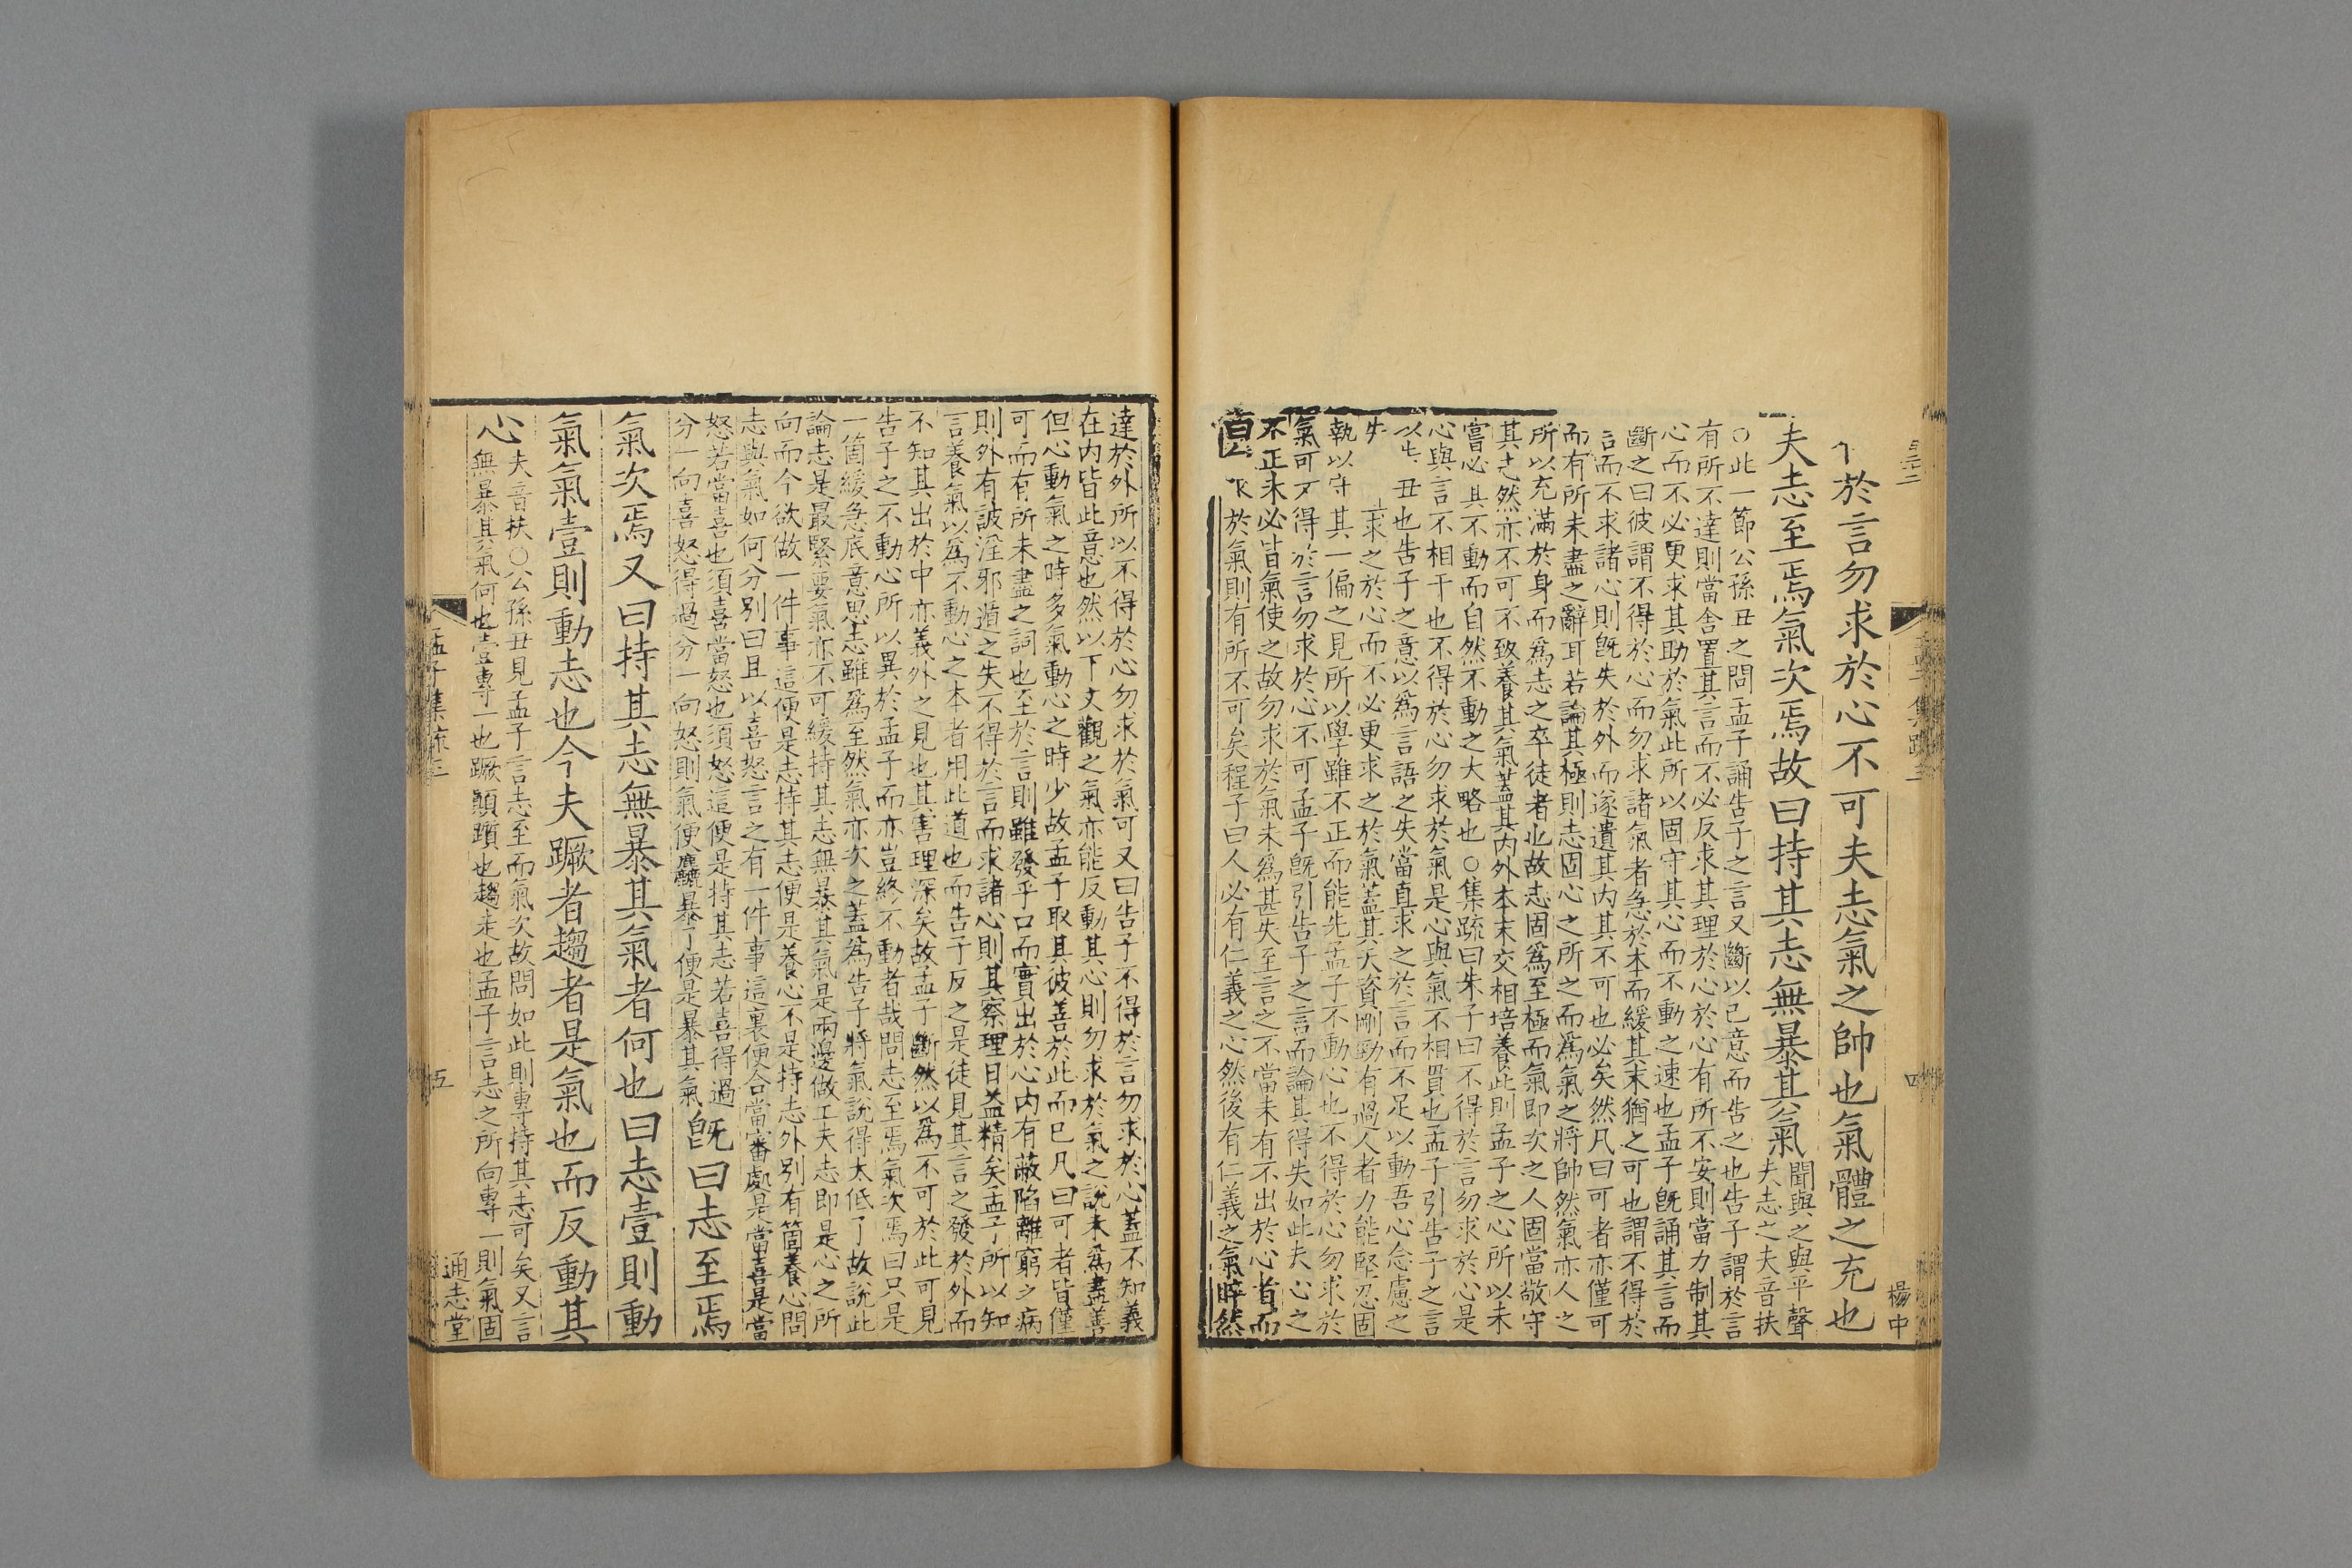 於言勿求於心不可夫志氣之帥也氣體之充也
夫志至焉氣次焉故曰持其志無暴其氣聞與之與平聲夫志之夫音扶
○此一節公孫丑之問孟子誦告子之言又斷以己意而告之也告子謂於言
有所不達則當舍置其言而不必反求其理於心於心有所不安則當力制其
心而不必更求其助於氣此所以固守其心而不動之速也孟子旣誦其言而
斷之曰彼謂不得於心而勿求諸氣者急於本而緩其末猶之可也謂不得於
言而不求諸心則旣失於外而遂遺其內其不可也必矣然凡曰可者亦僅可
而有所未盡之辭耳若論其極則志固心之所之而爲氣之將帥然氣亦人之
所以充滿於身而爲志之卒徒者也故志固爲至極而氣即次之人固當敬守
其志然亦不可不致養其氣蓋其內外本末交相培養此則孟子之心所以未
嘗必其不動而自然不動之大略也○集疏曰朱子曰不得於言勿求於心是
心與言不相干也不得於心勿求於氣是心與氣不相貫也孟子引告子之言
以告丑也告子之意以爲言語之失當直求之於言而不足以動吾心念慮之
失求之於心而不必更求之於氣蓋其天資剛勁有過人者力能堅忍固
執以守其一偏之見所以學雖不正而能先孟子不動心也不得於心勿求於
氣可不得於言勿求於心不可孟子旣引告子之言而論其得失如此夫心之
不正未必皆氣使之故勿求於氣未爲甚失至言之不當未有不出於心者而
於氣則有所不可矣程子曰人必有仁義之心然後有仁義之氣睟然
楊中
達於外所以不得於心勿求於氣可又曰告子不得於言勿求於心蓋不知義
在內皆此意也然以下文觀之氣亦能反動其心則勿求於氣之說未爲盡善
但心動氣之時多氣動心之時少故孟子取其彼善於此而已凡曰可者皆僅
可而有所未盡之詞也至於言則雖發乎口而實出於心內有蔽陷離窮之病
則外有詖淫邪遁之失不得於言而求諸心則其察理日益精矣孟子所以知
言養氣以爲不動心之本者用此道也而告子反之是徒見其言之發於外而
不知其出於中亦義外之見也其害理深矣故孟子斷然以爲不可於此可見
告子之不動心所以異於孟子而亦豈終不動者哉問志至焉氣次焉曰只是
一箇緩急底意思志雖爲至然氣亦次之蓋爲告子將氣說得太低了故說此
論志是最緊要氣亦不可緩持其志無暴其氣是兩邊做工夫志即是心之所
向而今欲做一件事這便是志持其志便是養心不是持志外別有箇養心問
志與氣如何分別曰且以喜怒言之有一件事這裏便合當審處是當喜是當
怒若當喜也須喜當怒也須怒這便是持其志若喜得過
分一向喜怒得過分一向怒則氣便麤暴了便是暴其氣旣曰志至焉
氣次焉又曰持其志無暴其氣者何也曰志壹則動
氣氣壹則動志也今夫蹶者趨者是氣也而反動其
心夫音扶○公孫丑見孟子言志至而氣次故問如此則專持其志可矣又言
無暴其氣何也壹專一也蹶顚躓也趨走也孟子言志之所向專一則氣固
孟子集疏三
五
通志堂